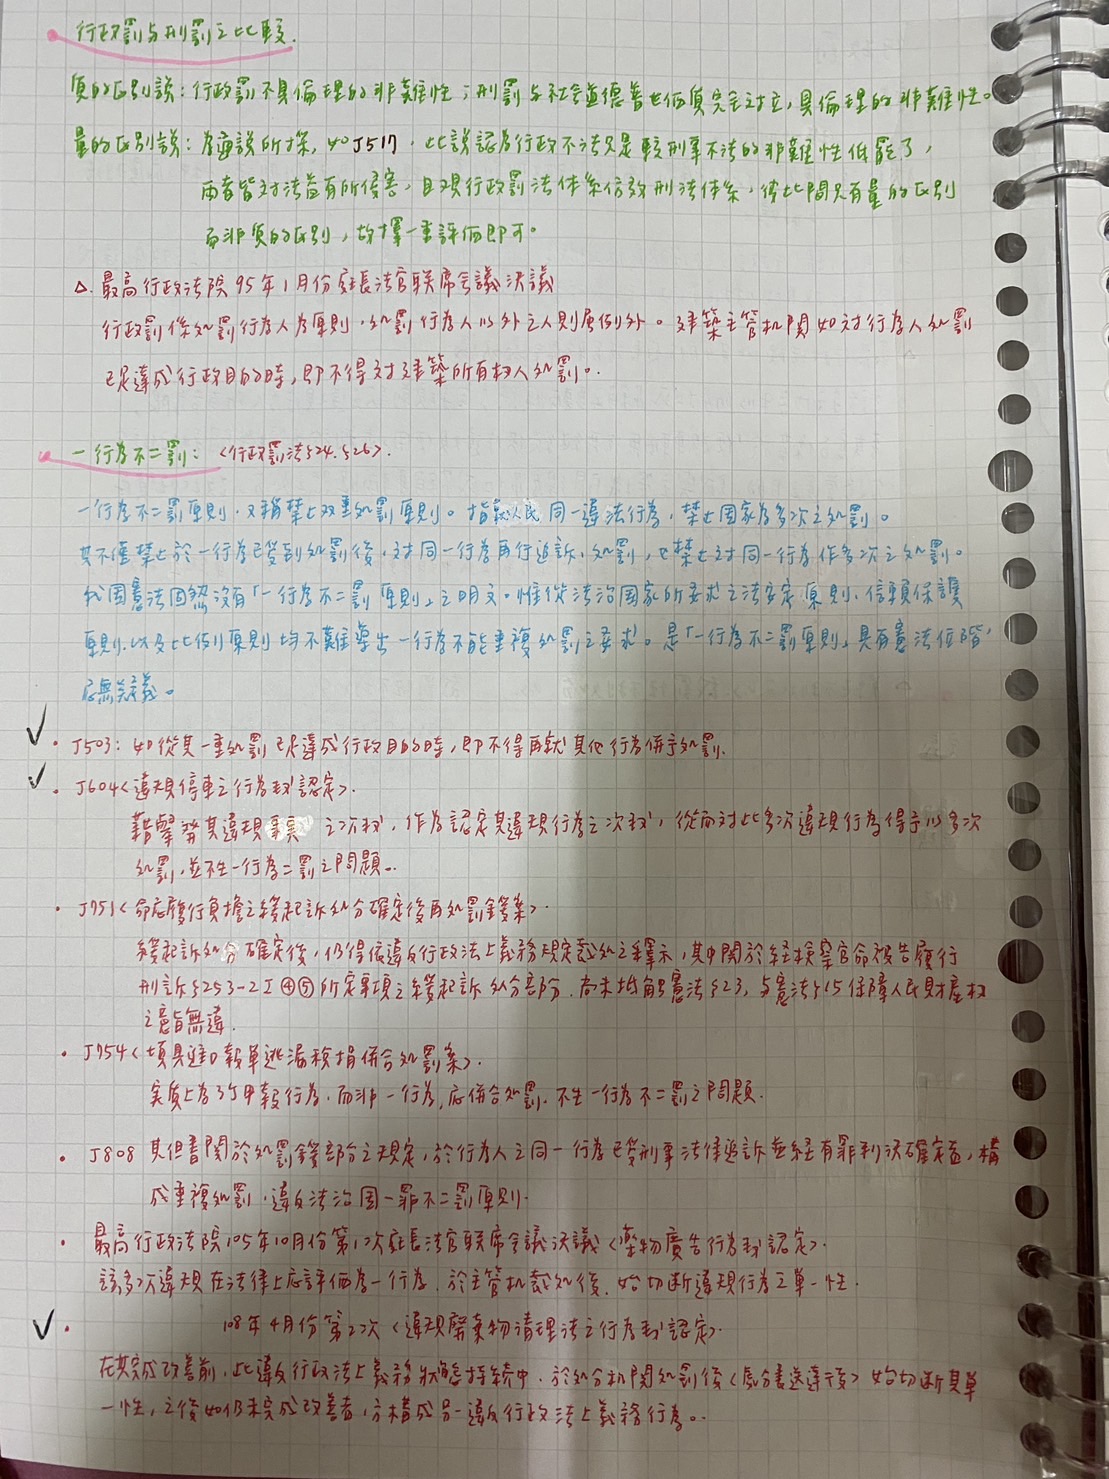 行政罰与刑罰之比較.
質的区別說：行政罰不具倫理的非難性；刑罰与社会道德善也価質完全対立，具倫理的非難性。
量的区別說：為通說所採，如J517，此說認為行政不法只是較刑事不法的非難性低罷了，
両者皆対法益有所侵害，且現行政罰法体系仿效刑法体系，使此間只有量的区別
而非質的区別，故擇一重評価即可。
△. 最高行政法院95年1月份庭長法官联席会議決議
行政罰係処罰行為人為原則，処罰行為人以外之人則属例外。建築主管机関如対行為人処罰
已足達成行政目的時，即不得対建築所有权人処罰。
一行為不二罰：〈行政罰法§24.§26〉.
一行為不二罰原則，又稱禁止双重処罰原則。指就人民同一違法行為，禁止国家為多次之処罰。
其不僅禁止於一行為已受到処罰後，対同一行為再行追訴，処罰，也禁止対同一行為作多次之処罰。
我国憲法固然沒有「一行為不二罰原則」之明文。惟從法治国家所要求之法安定原則、信賴保護
原則.以及比例原則均不難導出一行為不能重複処罰之要求。是「一行為不二罰原則」具有憲法位階，
応無疑義。
✓ ・J503：如從其一重処罰已足達成行政目的時，即不得再就其他行為併予処罰.
✓ ・J604〈違規停車之行為数認定〉.
藉舉發其違規事実之次数，作為認定其違規行為之次数，從而対此多次違規行為得予以多次
処罰，並不生一行為二罰之問題.
・J751〈命応履行負擔之緩起訴処分確定後再処罰鍰案〉.
緩起訴処分確定後，仍得依違反行政法上義務規定裁処之釋示，其中関於経檢察官命被告履行
刑訴§253-2I④⑤所定事項之緩起訴処分部分，尚未抵触憲法§23，与憲法§15保障人民財產权
之意旨無違.
・J754〈填具進口報單逃漏稅捐併合処罰案〉.
実質上為3个申報行為，而非一行為，応併合処罰.不生一行為不二罰之問題.
・J808 其但書関於処罰鍰部分之規定，於行為人之同一行為已受刑事法律追訴並経有罪判決確定者，構
成重複処罰，違反法治国一罪不二罰原則.
・最高行政法院105年10月份第1次庭長法官联席会議決議〈藥物廣告行為数認定〉.
該多次違規在法律上応評価為一行為，於主管机裁処後，始切断違規行為之單一性.
✓ ・108年4月份第2次〈違規廢棄物清理法之行為数認定〉.
在其完成改善前，此違反行政法上義務狀態持続中，於処分机関処罰後〈處分書送達後〉始切断其單
一性，之後如仍未完成改善者，方構成另一違反行政法上義務行為。